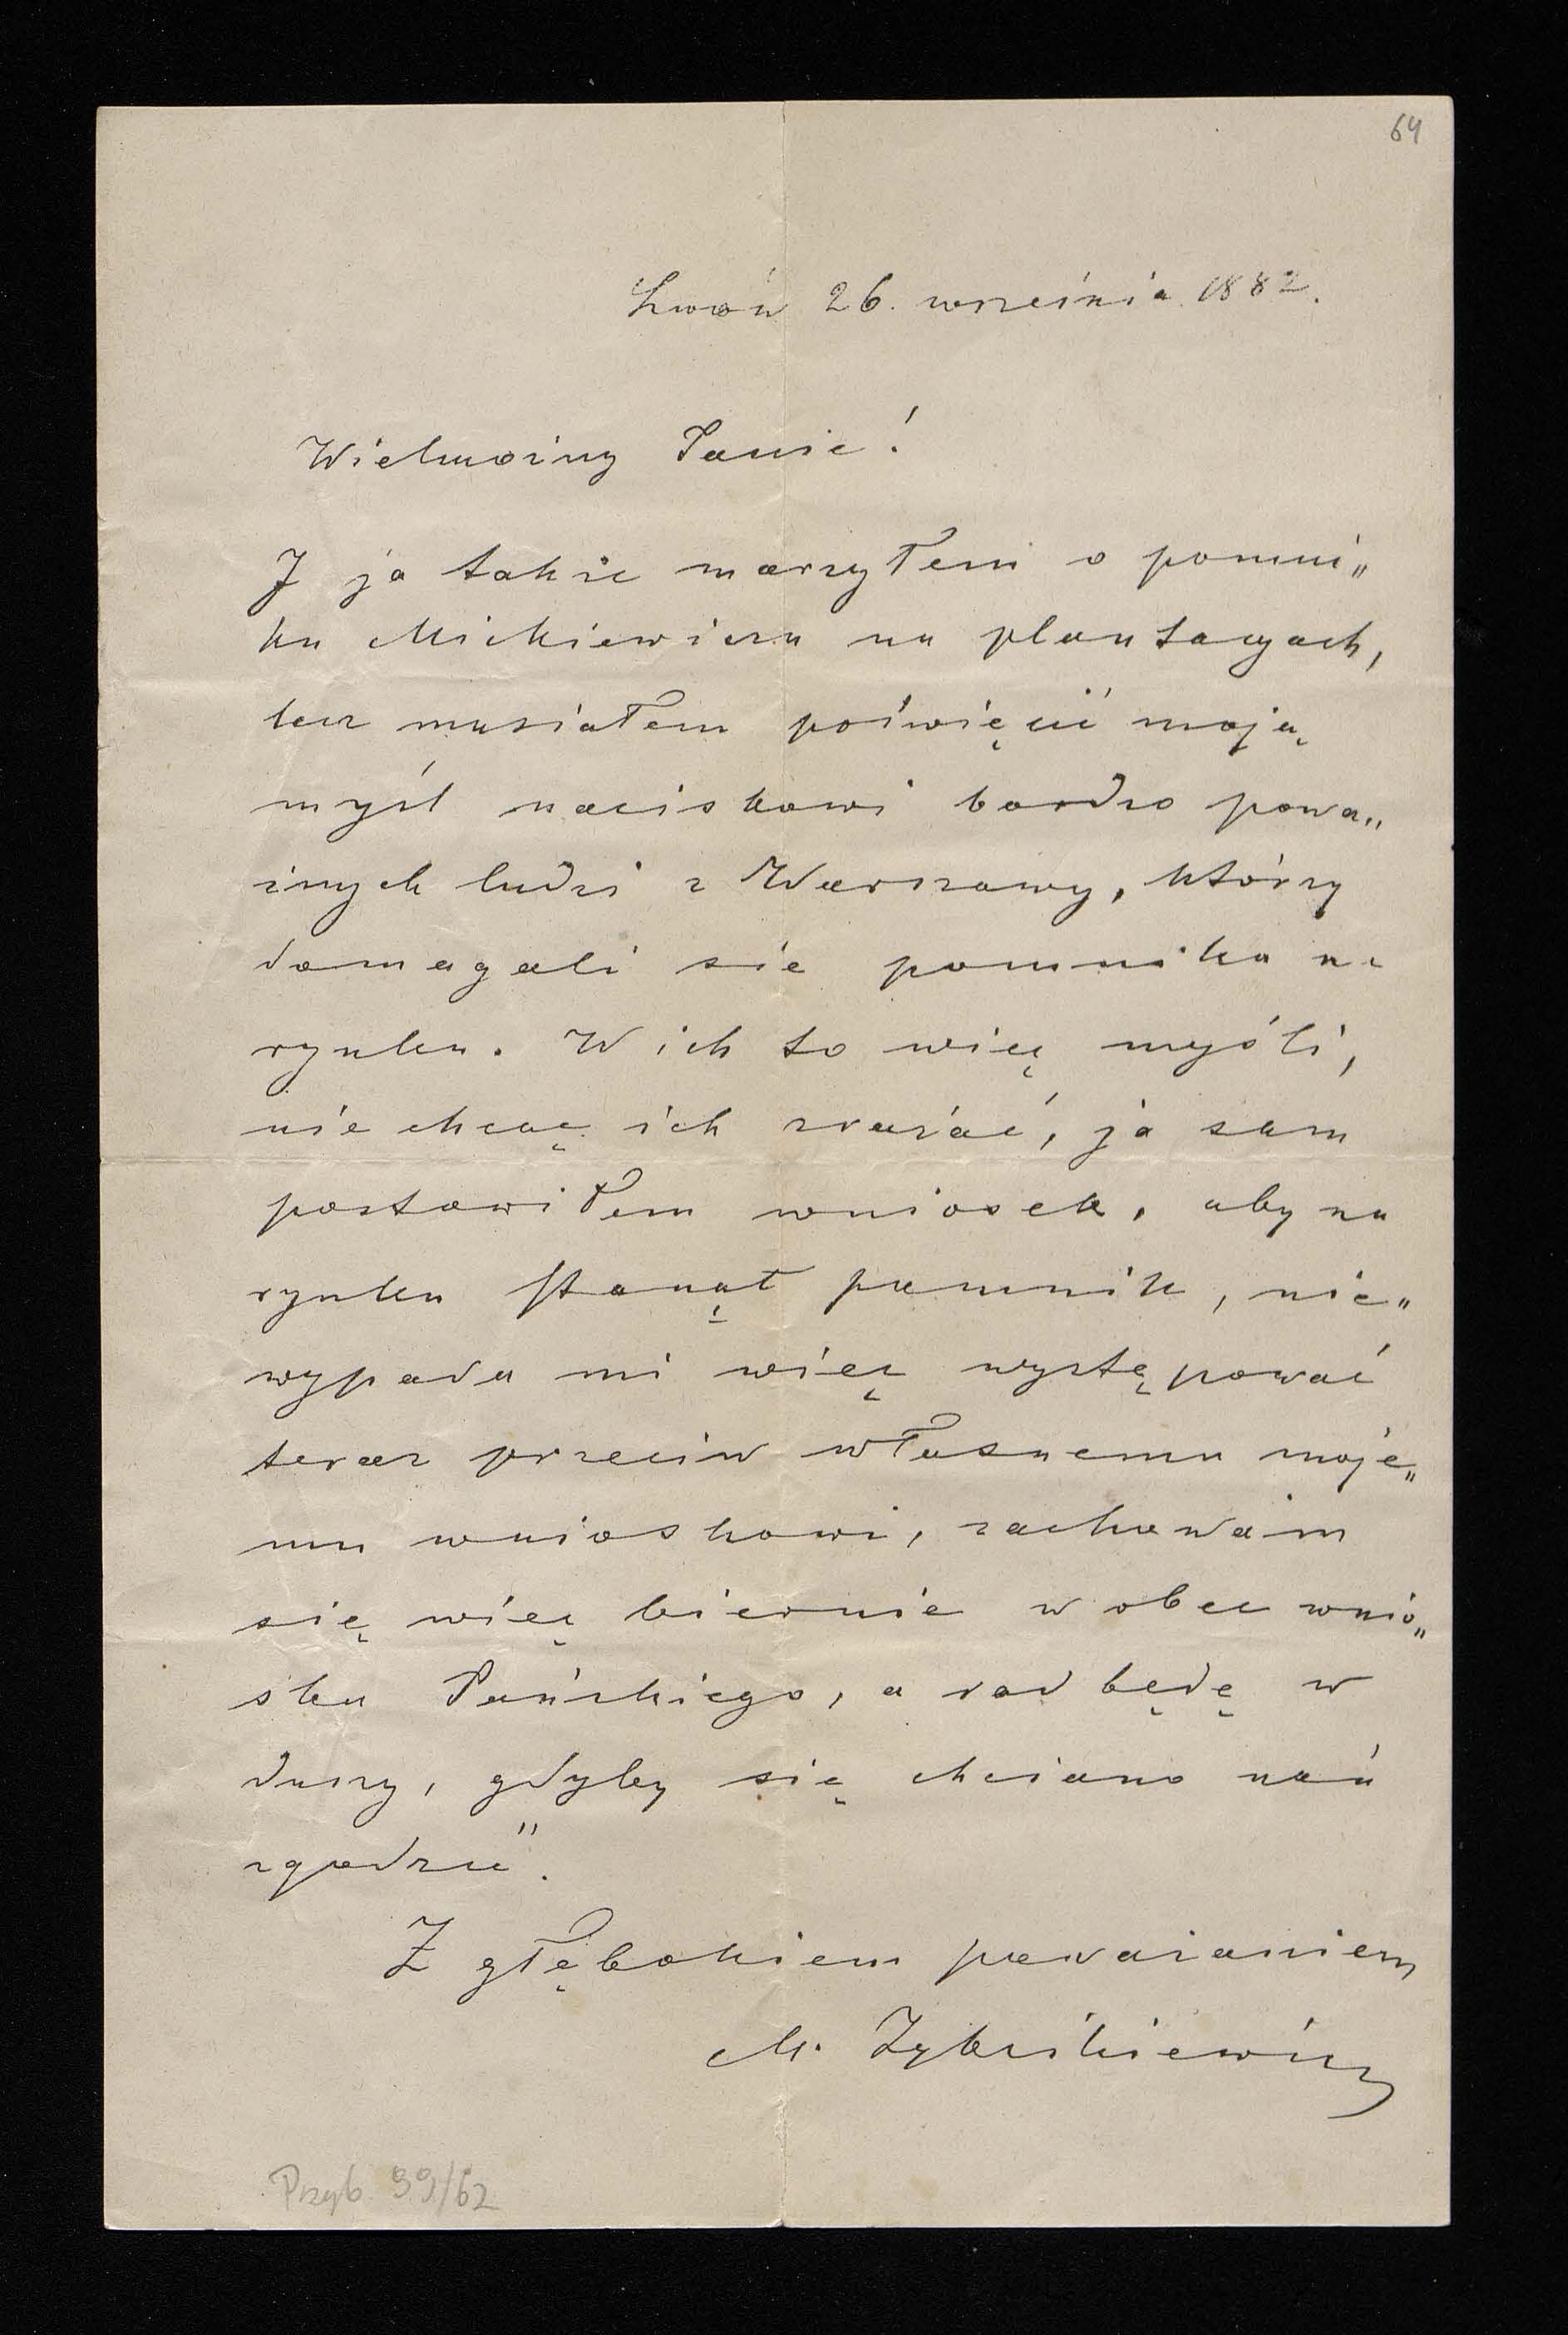 64
Lwów 26. września 1882.
Wielmożny Panie!
I ja także marzyłem o pomni„
ku Mickiewicza na plantacyach,
lecz musiałem poświęcić moją
myśl naciskowi bardzo powa„
żnych ludzi z Warszawy, którzy
domagali się pomnika na
rynku. W ich to więc myśli,
nie chcąc ich zrażać, ja sam
postawiłem wniosek, aby na
rynku stanął pomnik, nie„
wypada mi więc występować
teraz przeciw własnemu moje„
mu wnioskowi, zachowam
się więc biernie w obec wnio„
sku Pańskiego, a rad będę w
duszy, gdyby się chciano nań
zgodzić.
Z głębokiem poważaniem
M. Zyblikiewicz
Przyb. 99/62